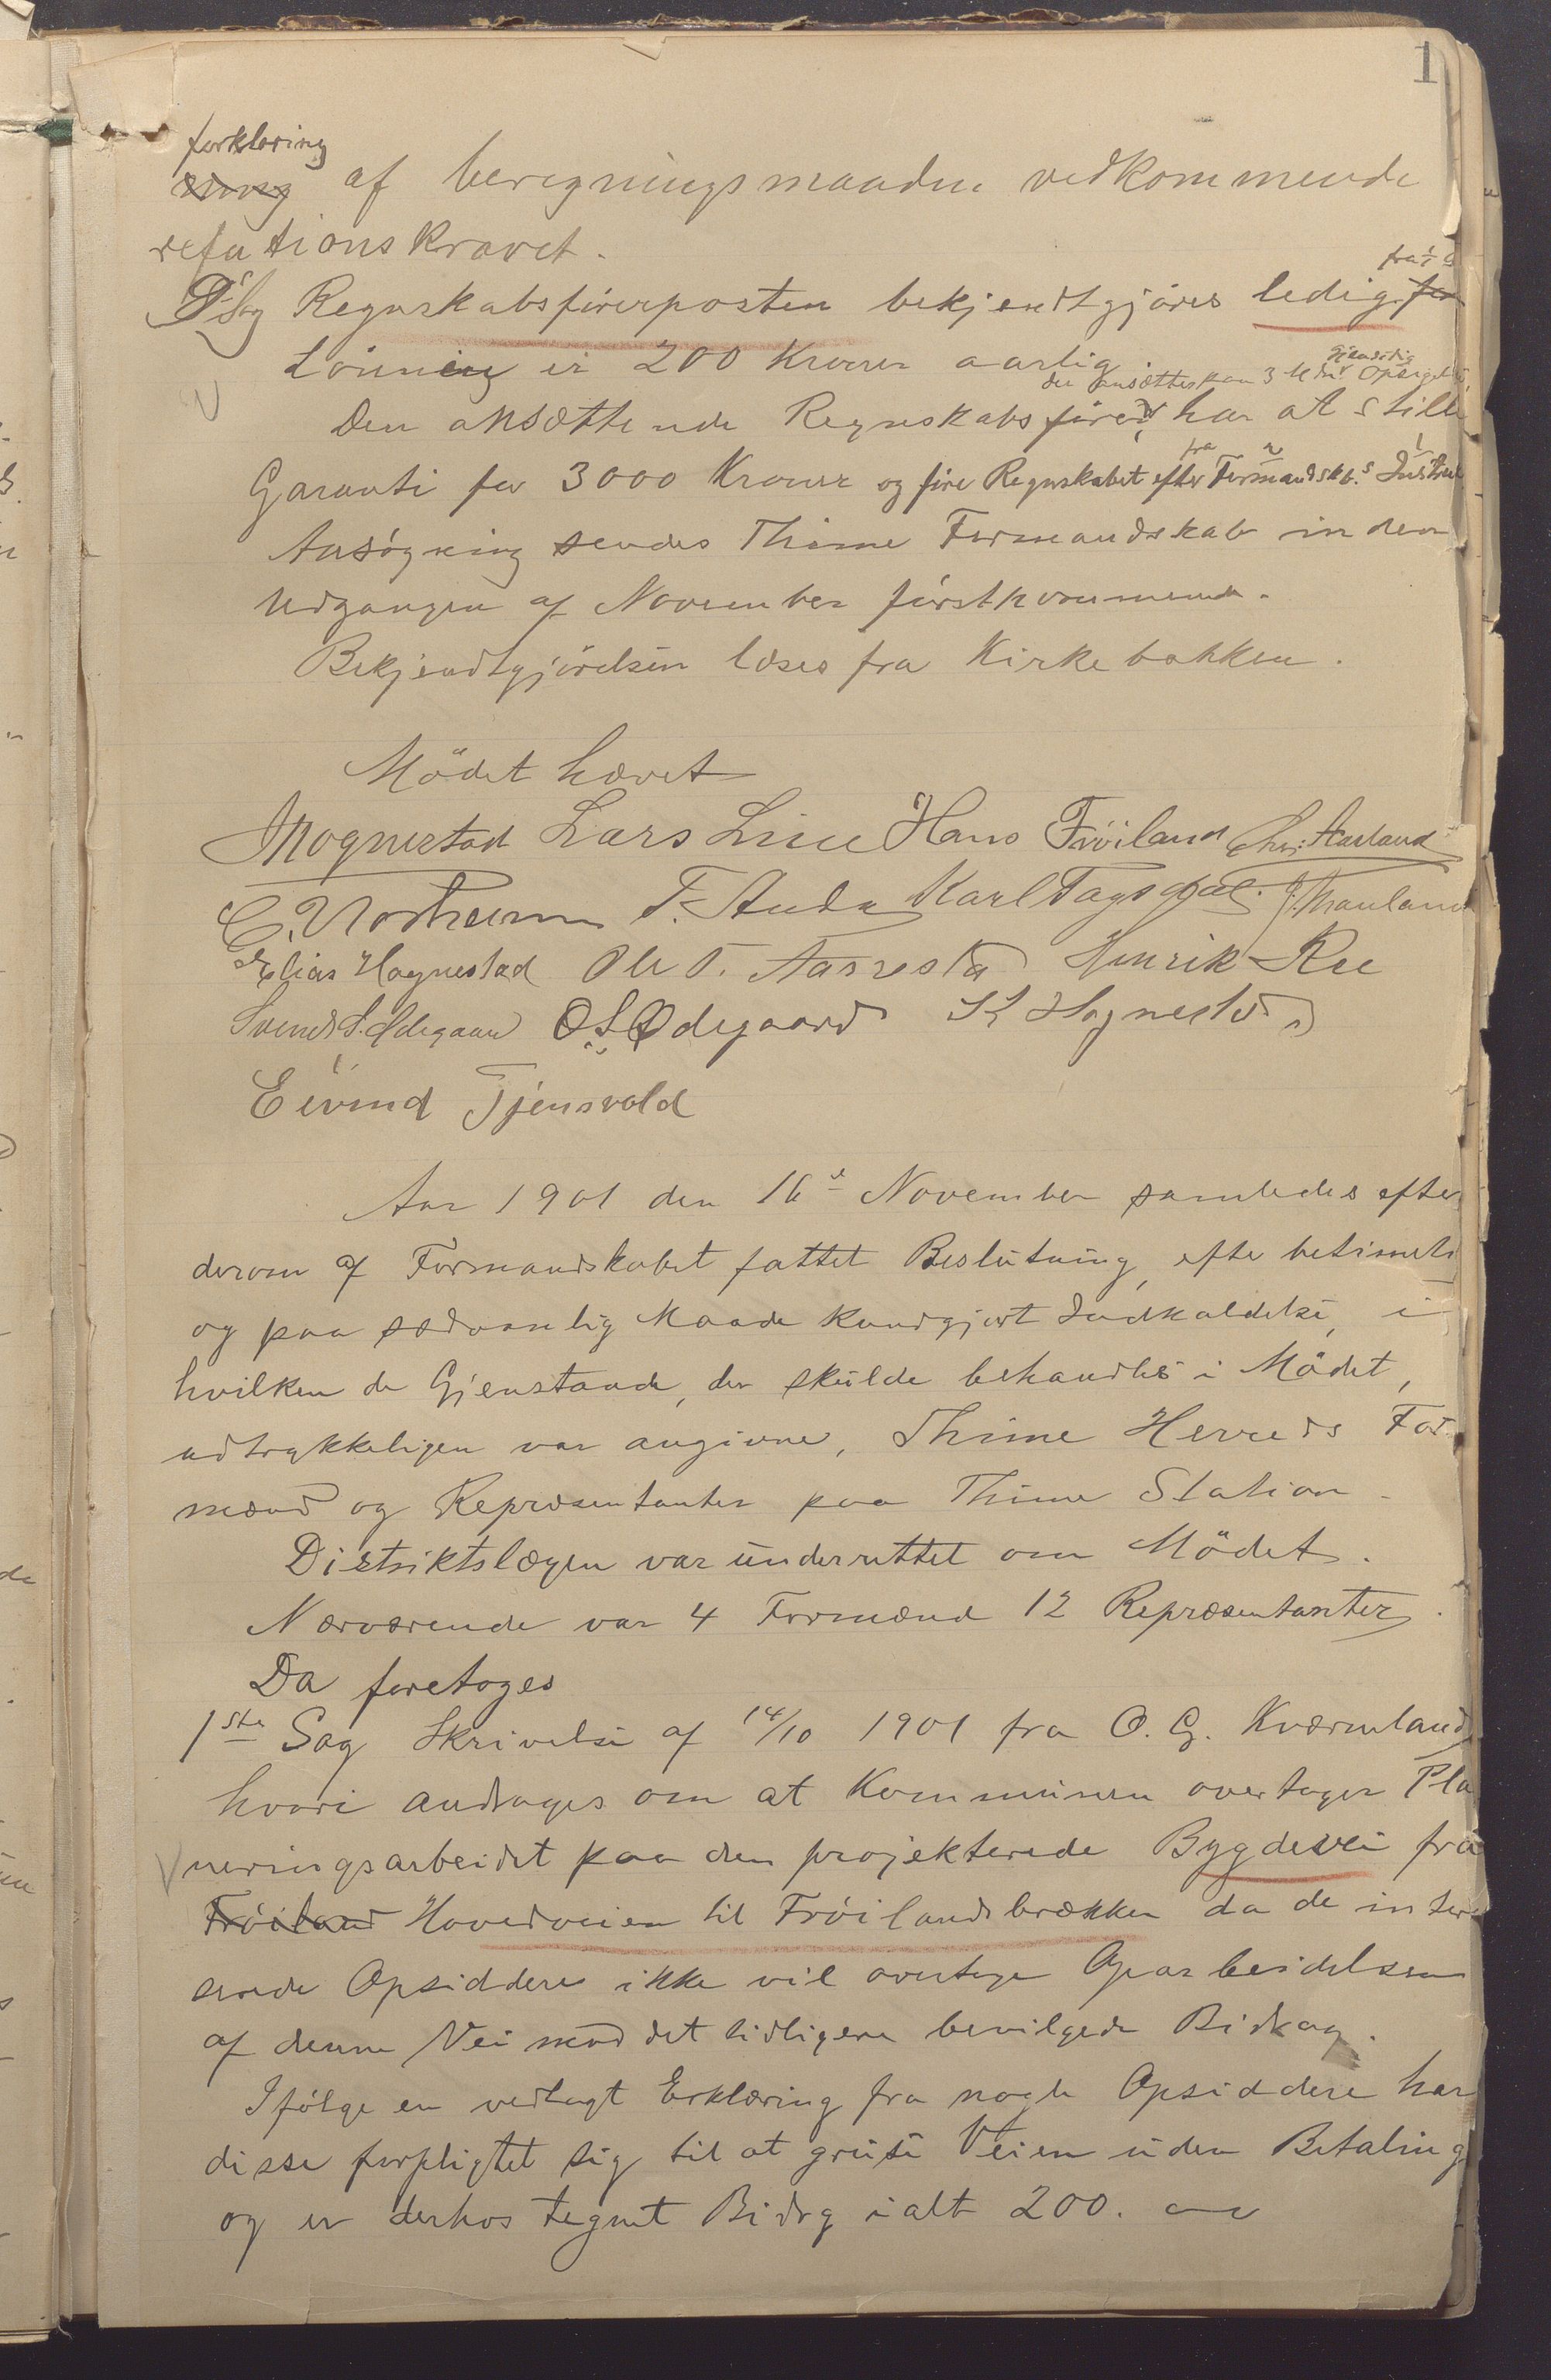 1
forklaring
af beregningsmaaden vedkommende
refutionskravet.
Sag Regnskabsførerposten bekjendtgjøres ledig fra
Lønning er 200 Kroner aarlig.
der ansættes paa 3 Mdr gjensidig Opsigelse
Den ansættende Regnskabsfører har at stille
Garanti for 3000 Kroner og føre Regnskabet efter Formandskb.s Instruk
Ansøgning sendes Thime Formandskab inden
Udgangen af November førstkommende.
Bekjendtgjørelsen læses fra Kirkebakken.
Mödet hævet
Mognestad Lars Line Hans Frøiland Chr. Aarland
C. Norheim T. Auda Karl Tagsdal. J. Brauland
Elias Hognestad Ole T. Aasrestad Henrik Ree
Svend S. Ødegaard O. S. Ødegaard Hognestad
Eivind Tjensvold
Aar 1901 den 16de November samledes efter
derom af Formandskabet fattet Beslutning, efter betimelig
og paa sædvanlig Maade kundgjort Indkaldelse, i
hvilken de Gjenstande, der skulde behandles i Mödet,
udtrykkeligen var angivne, Thime Herreds For-
mænd og Repræsentanter paa Thime Station.
Distriktslægen var underrettet om Mödet.
Nærværende var 4 Formænd 12 Repræsentanter.
Da foretoges
1ste Sag Skrivelse af 14/10 1901 fra O. G. Kværneland
hvori andrages om at Kommunen overtager Pla
neringsarbeidet paa den projekterede Bygdevei fra
Frøiland Hovedveien til Frøilandsbrækken da de intere
serede Opsiddere ikke vil overtage Oparbeidelsen
af denne Vei mod det tidligere bevilgede Bidrag.
Ifølge en vedlagt Erklæring fra nogle Opsiddere har
disse forpligtet sig til at gruse Veien uden Betaling
og er derhos tegnet Bidrg ialt 200.